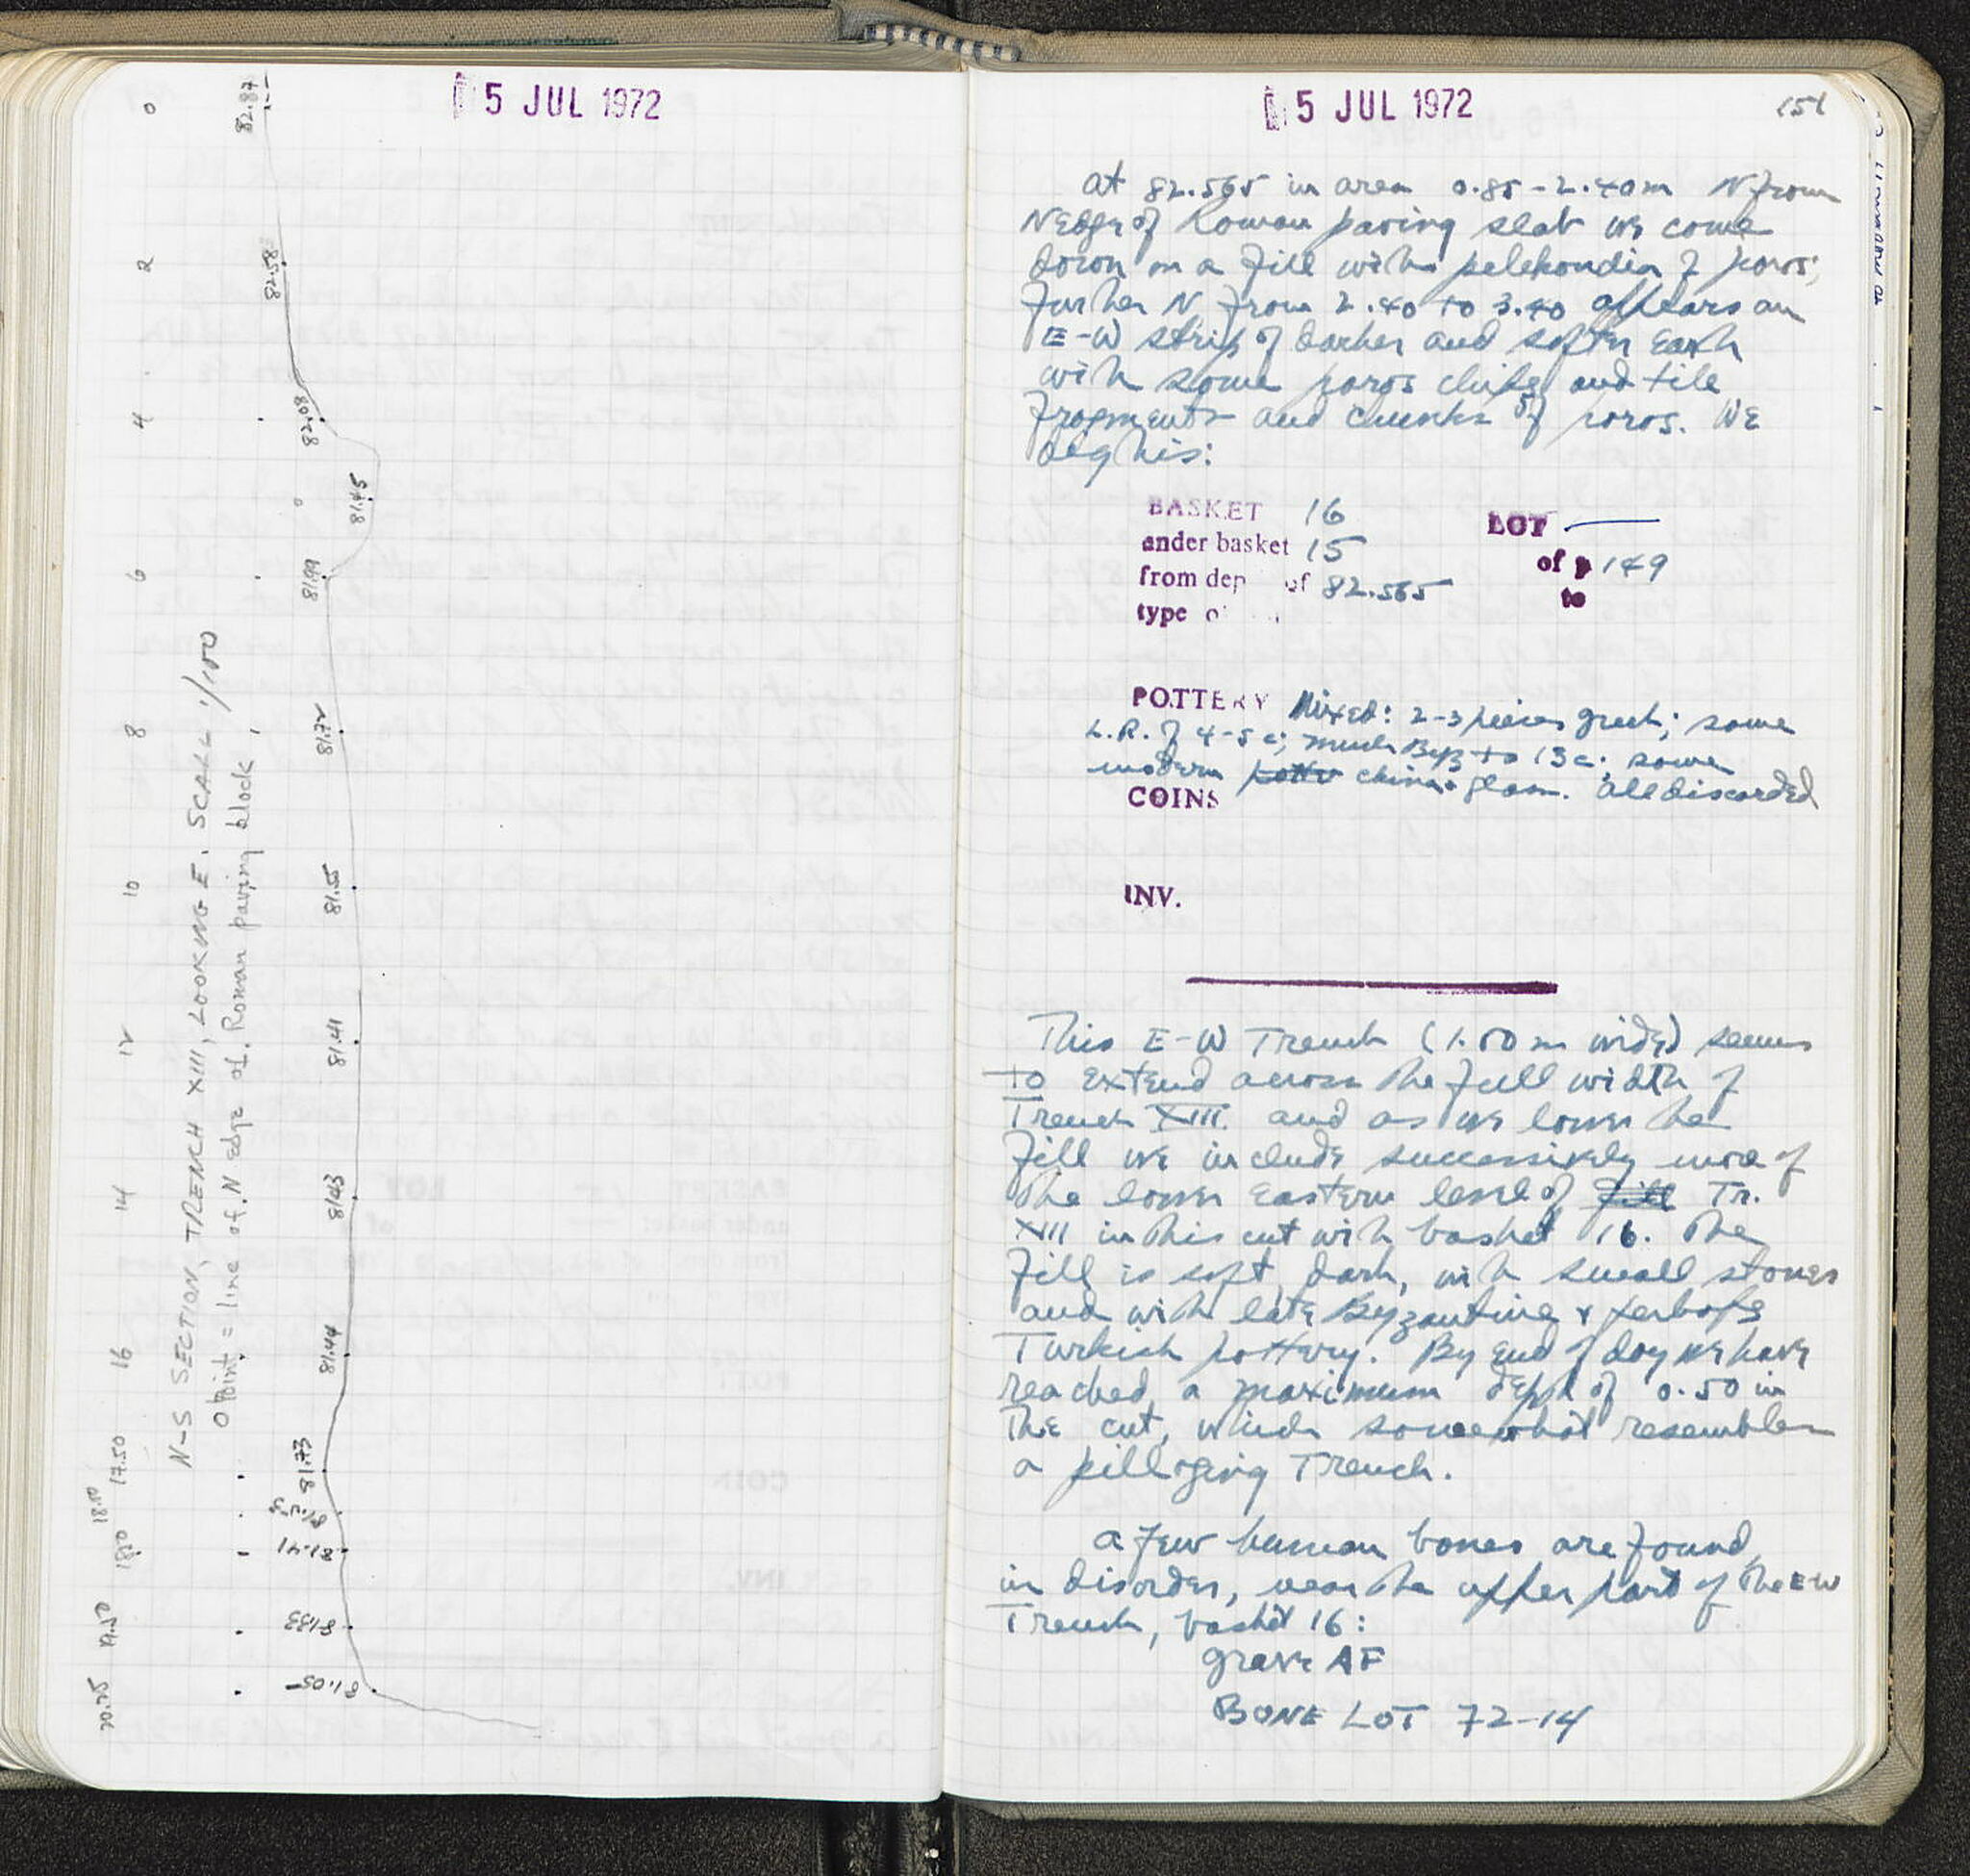 5 JUL 1972
0
2
4
6
8
10
12
14
16
17.50
18.10
18.50
19.70
20.75
82.87
82.58
82.08
81.45
81.99
81.72
81.55
81.41
81.43
81.44
81.73
81.41
81.33
81.05
N-S SECTION, TRENCH XIII, LOOKING E. SCALE 1/100
0 point = line of N edge of Roman paving block
5 JUL 1972
151
at 82.565 in area 0.85-2.40m N from
N edge of Roman paving slab we come
down on a fill with pelekoudia of poros;
further N from 2.40 to 3.40 appears an
E-W strip of darker and softer earth
with some poros chips and tile
fragments and chunks of poros. We
dig this:
BASKET 16
under basket 15
from dep of 82.565
type o
LOT —
of p 149
to
POTTERY Mixed: 2-3 pieces greek; some
L.R. of 4-5 c; much Byz to 13c; some
modern china & glass. All discarded
COINS
INV.
This E-W Trench (1.00 m wide) seems
to extend across the full width of
Trench XIII and as we lower the
fill we include successively more of
the lower Eastern level of fill Tr.
XIII in this cut with basket 16. The
fill is soft, dark, with small stones
and with late Byzantine & perhaps
Turkish pottery. By end of day we have
reached a maximum depth of 0.50 in
the cut, which somewhat resembles
a pillaging Trench.
A few human bones are found,
in disorder, near the upper part of the E-W
Trench, basket 16:
Grave AF
BONE LOT 72-14